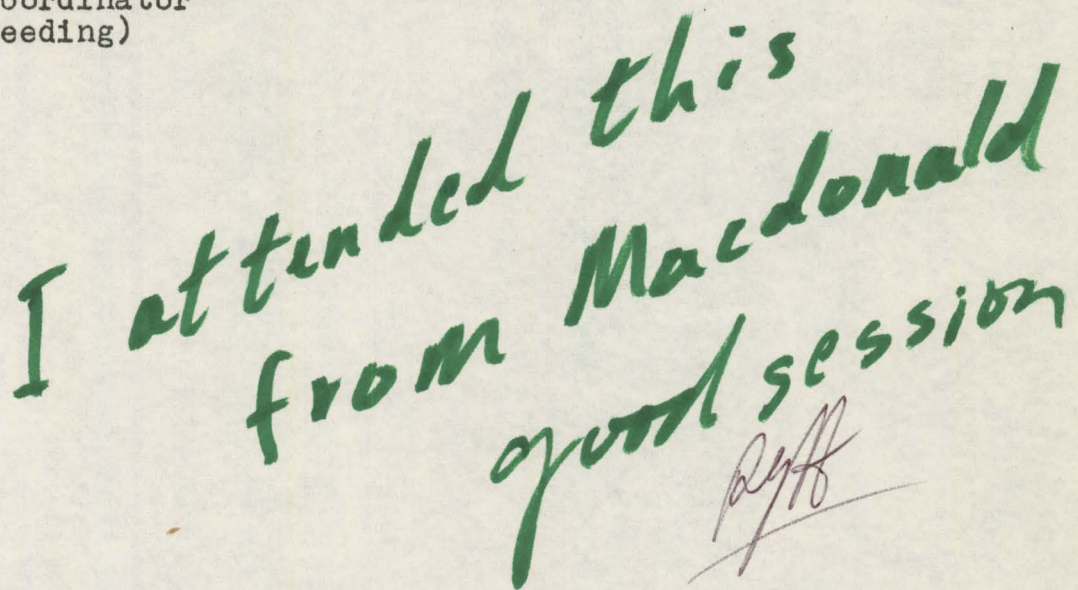 oordinator
eeding)
I attended this
from Macdonald
good session